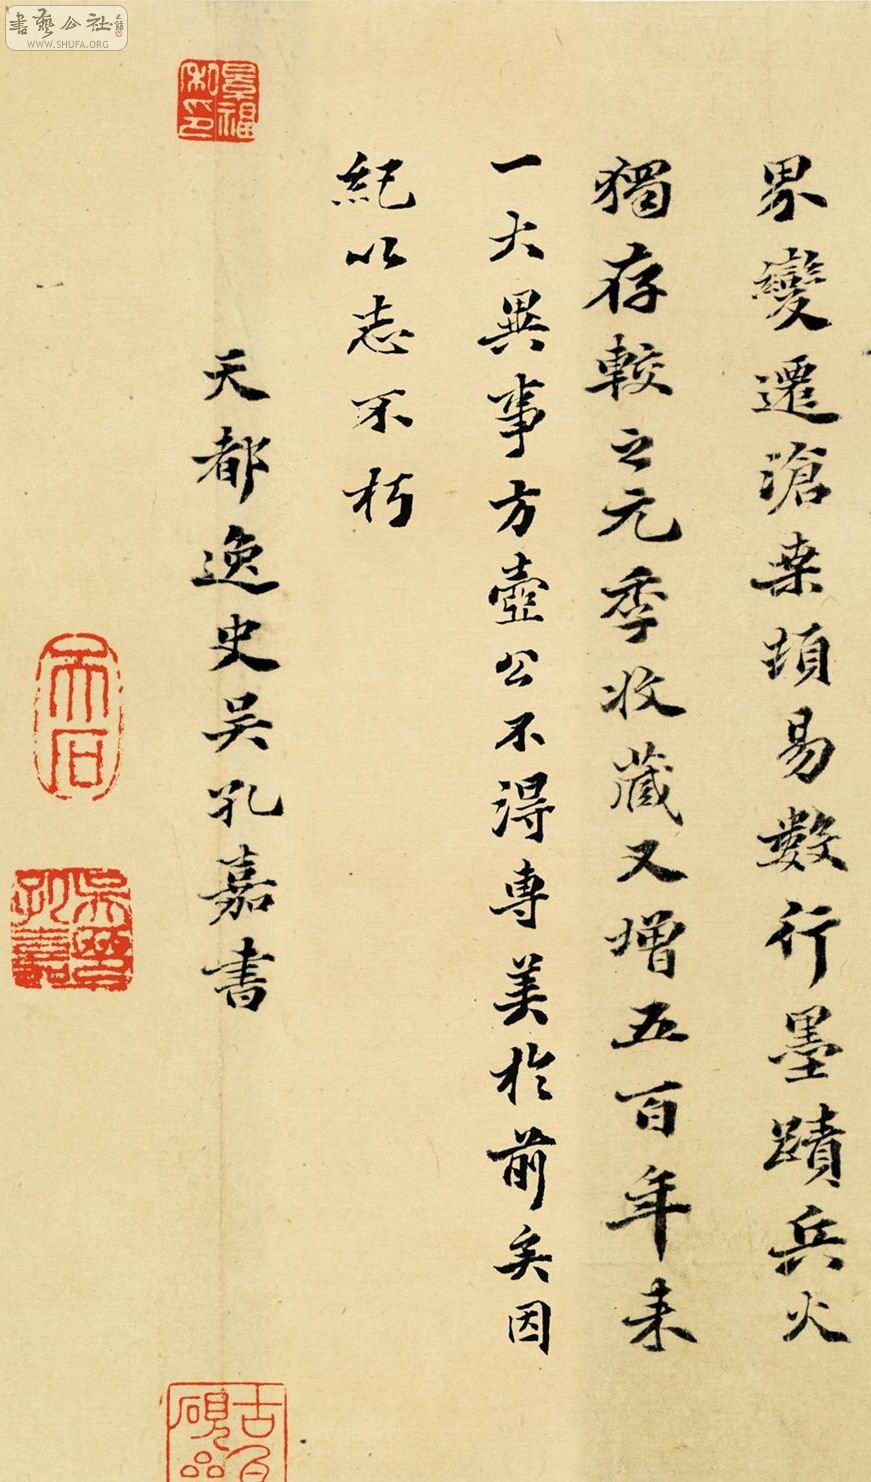 書藝公社
WWW.SHUFA.ORG
界變遷滄桑頃易數行墨蹟兵火
獨存較之元季收藏又增五百年来
一大異事方壺公不得專美於前矣因
紀以志不朽
天都逸史吳孔嘉書
天石